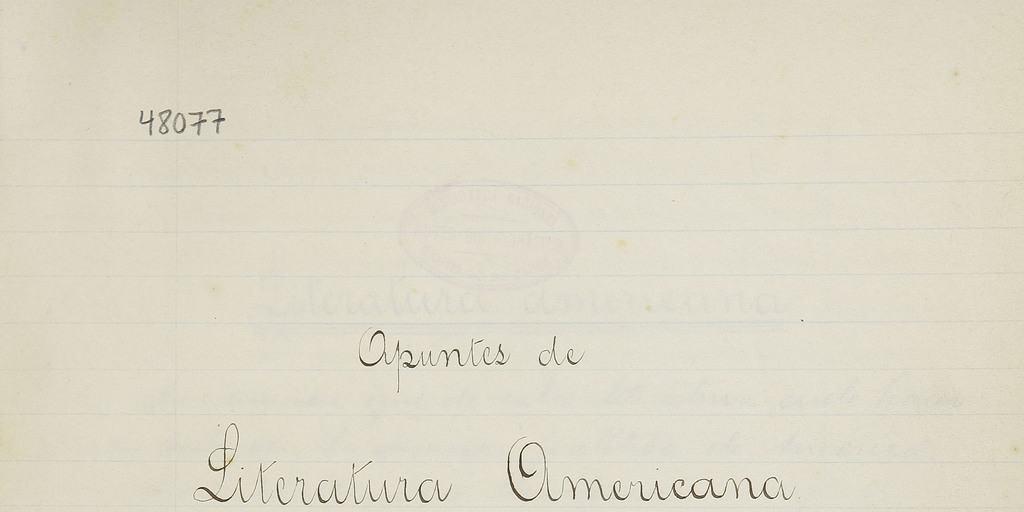 48077
Apuntes de
Literatura Americana